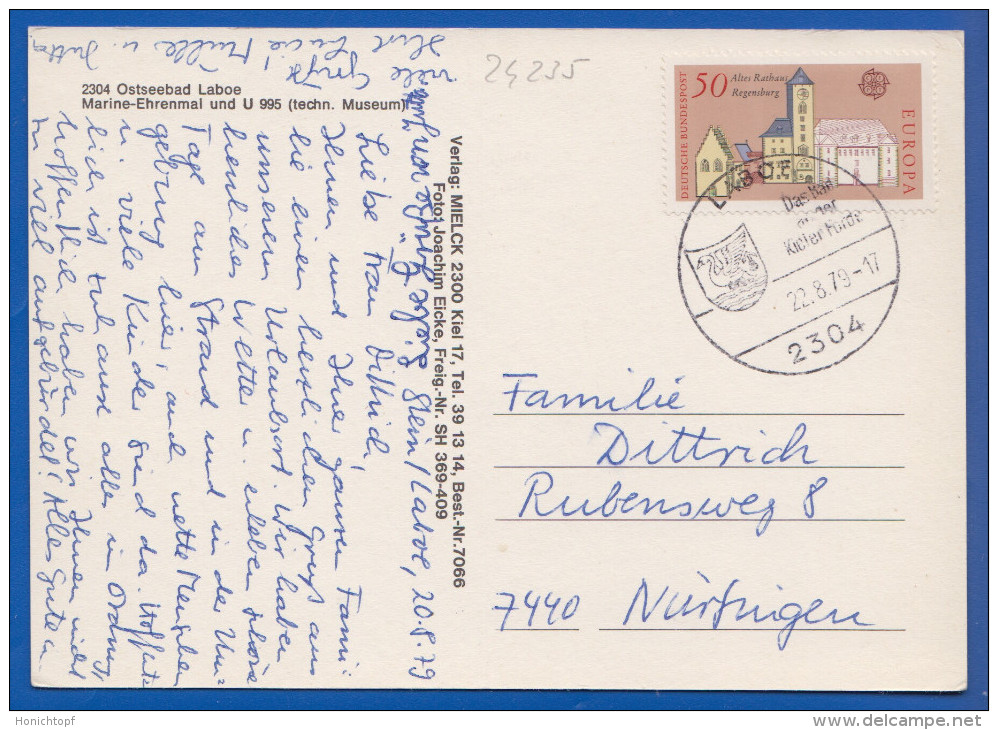 2304 Ostseebad Laboe
Marine-Ehrenmal und U 995 (techn. Museum)
24235
DEUTSCHE BUNDESPOST
50
Altes Rathaus
Regensburg
EUROPA
LABOE
Das Bad
an der
Kieler Förde
22.8.79-17
2304
Verlag: MIELCK 2300 Kiel 17, Tel. 39 13 14, Best.-Nr. 7066
Foto: Joachim Eicke, Freig.-Nr. SH 369-409
Stein/Laboe, 20.8.79
Liebe Frau Dittrich,
Ihnen und Ihrer ganzen Fami-
lie einen herzlichen Gruß aus
unserem Urlaubsort. Wir haben
herrliches Wetter u. erleben schöne
Tage am Strand und in der Um-
gebung hier auch nette Menschen
u. viele Kinder sind da. Hoffent-
lich ist zuhause alles in Ordnung,
hoffentlich haben wir Ihnen nicht
zu viel aufgebürdet! Alles Gute u.
viele Grüße
Ihre
u. Jutta
Familie
Dittrich
Rubensweg 8
7440 Nürtingen
Honichtopf
delcampe.net